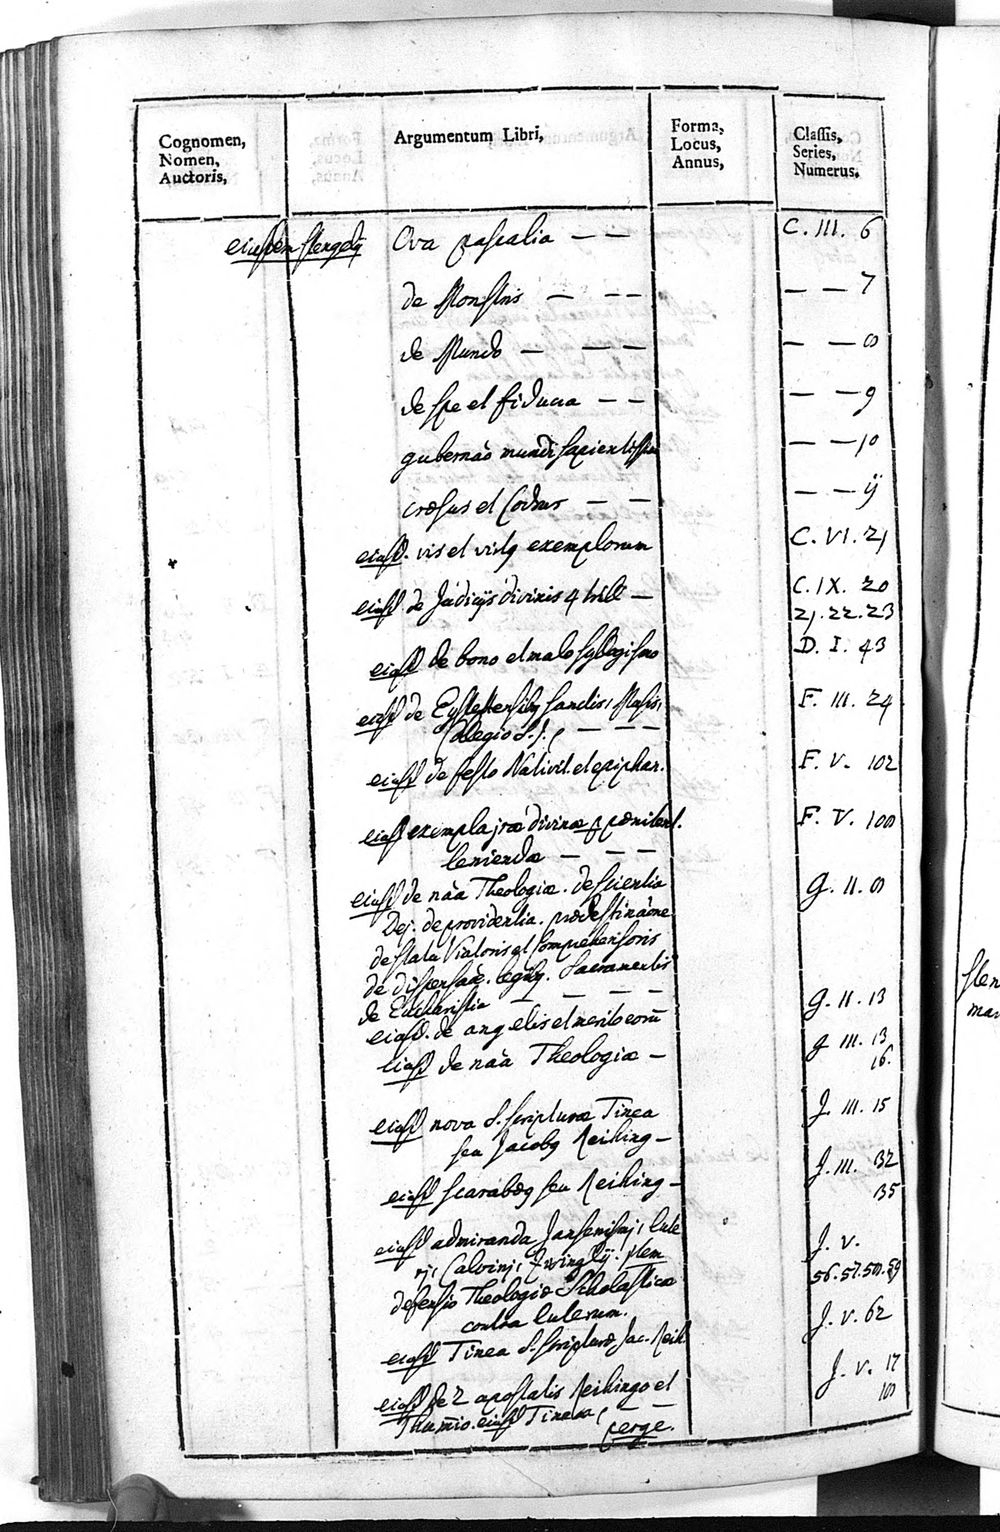 Cognomen,
Nomen,
Auctoris,
Argumentum Libri,
Forma,
Locus,
Annus,
Classis,
Series,
Numerus.
eiusdem Stengelij Ova paschalia — — C. III. 6
de Monstris — — — — — 7
de Mundo — — — — — 8
de spe et fiducia — — — — 9
gubernao mundi sapientissima — — 10
crœsus et Codrus — — — — ij
eiusd. vis et virtq exemplorum C. VI. 21
eiusd de Judicijs divinis 4 — C. IX. 20
21. 22. 23
eiusd de bono et malo syllogismo D. I. 43
eiusd de Eystettensibq sanctis, F. III. 24
Collegio S. J. — — —
eiusd de festo Nativit. et epiphan. F. V. 102
eiusd exempla iræ divinæ p pœnitent. F. V. 108
leniendæ — — —
eiusd de naa Theologiæ. de scientia G. II. 8
Dej. de providentia. prædestinaone
de statu Viatoris et Comprehensoris
de dispensae. legq. Sacramentis
de Eucharistia — — — —
eiusd. de angelis et merito eorū G. II. 13
eiusd de naa Theologiæ — G III. 13
16.
eiusd nova S. Scripturæ Tinea J. III. 15
seu Jacobq Reihing —
eiusd scarabæq seu Reihing — J. III. 132
135
eiusd admiranda Jansenisaj, Lute J. V.
rj, Calvinj, Zwinglij. Item 56. 57. 58. 59
defensio Theologiæ Scholasticæ
contra Luterum. J. V. 62
eiusd Tinea S. Scripturæ Jac. Reih.
eiusd de 2 apostatis Reihingo et J. V. 17
eiusd Tinea, — — 18
perge.